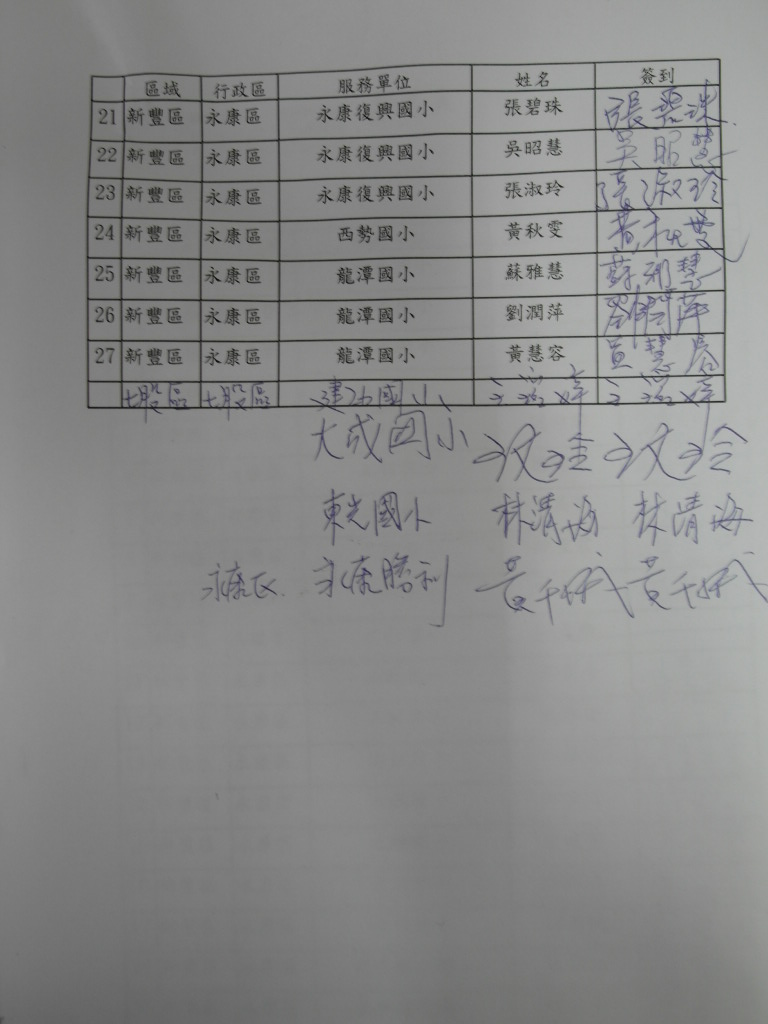 區域 行政區 服務單位 姓名 簽到
21 新豐區 永康區 永康復興國小 張碧珠 張碧珠
22 新豐區 永康區 永康復興國小 吳昭慧 吳昭慧
23 新豐區 永康區 永康復興國小 張淑玲 張淑玲
24 新豐區 永康區 西勢國小 黃秋雯 黃秋雯
25 新豐區 永康區 龍潭國小 蘇雅慧 蘇雅慧
26 新豐區 永康區 龍潭國小 劉潤萍 劉潤萍
27 新豐區 永康區 龍潭國小 黃慧容 黃慧容
建功國小
大成國小
東光國小 林清海 林清海
永康區 永康勝利